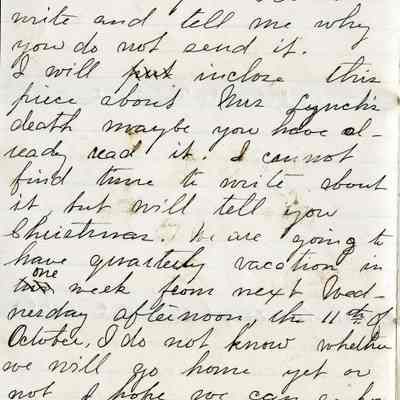 write and tell me why
you do not send it.
I will put inclose this
piece about Mrs Lynch's
death maybe you have al-
ready read it. I cannot
find time to write about
it but will tell you
Christmas. We are going to
have quarterly vacation in
one
week from next Wed-
nesday afternoon, the 11th of
October, I do not know whether
we will go home yet or
not I hope we can